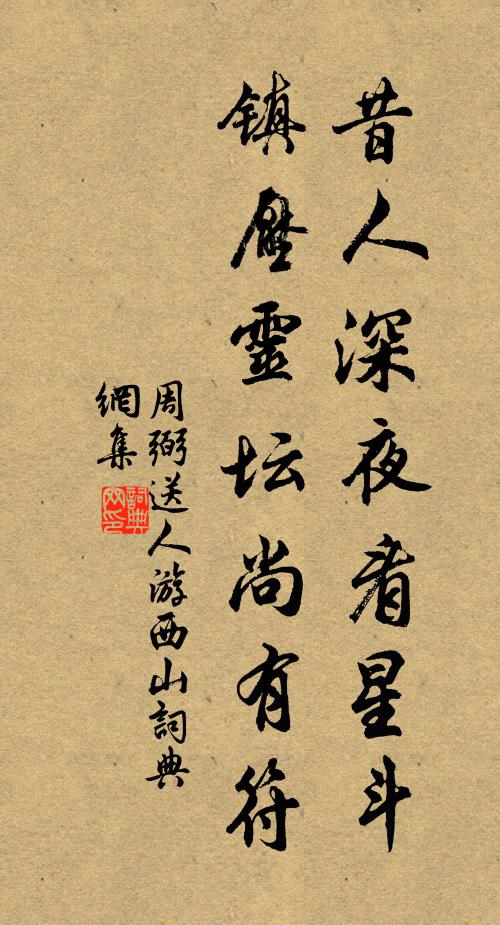 昔人深夜看星斗
镇压靈坛尚有符
周弼送人游西山詞典
網集
詞典
网印